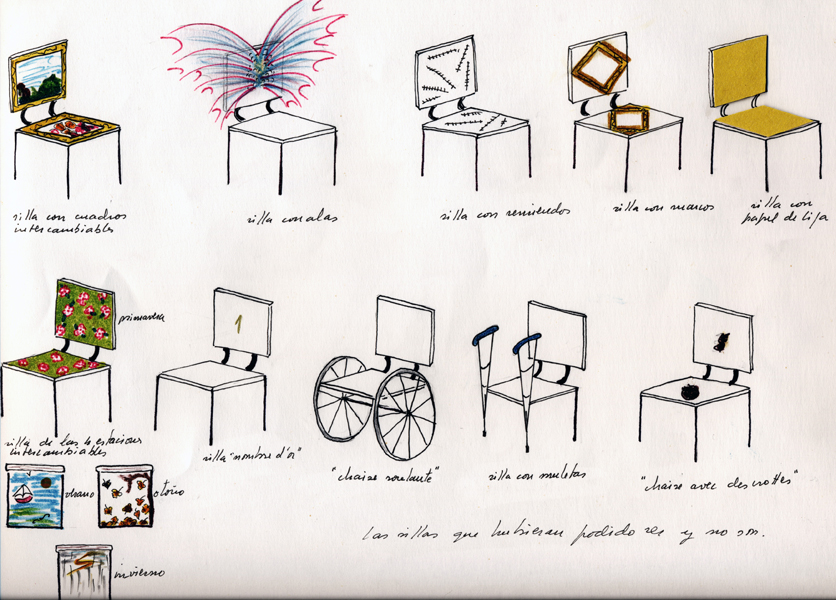 silla con cuadros
intercambiables
silla con alas
silla con remiendos
silla con marcos
silla con
papel de lija
primavera
silla de las 4 estaciones
intercambiables
1
silla "nombre d'or"
"chaise roulante"
silla con muletas
"chaise avec des crottes"
verano
otoño
invierno
Las sillas que hubieran podido ser y no son.